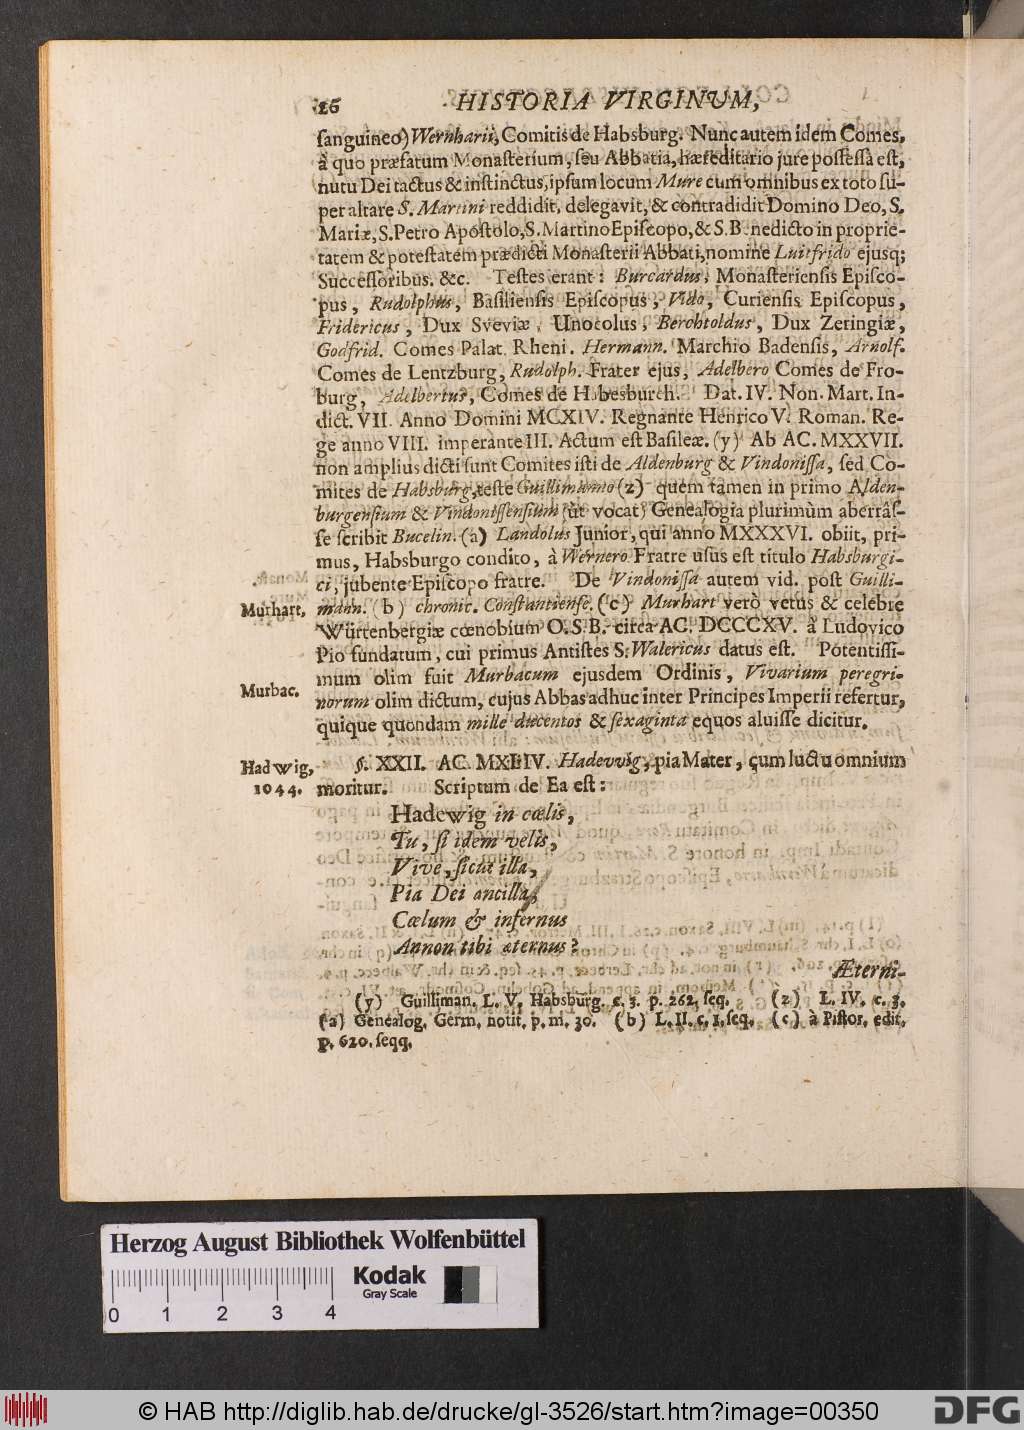 16 HISTORIA VIRGINUM,
ſanguineo) Wernharii, Comitis de Habsburg. Nunc autem idem Comes,
à quo præfatum Monaſterium, ſeu Abbatia, hæreditario jure poſſeſſa eſt,
nutu Dei tactus & inſtinctus, ipſum locum Mure cum omnibus ex toto ſu-
per altare S. Martini reddidit, delegavit, & contradidit Domino Deo, S.
Mariæ, S. Petro Apoſtolo, S. Martino Epiſcopo, & S. Benedicto in proprie-
tatem & poteſtatem prædicti Monaſterii Abbati, nomine Luitfrido ejusq;
Succeſſoribus. &c. Teſtes erant: Burcardus, Monaſterienſis Epiſco-
pus, Rudolphus, Baſilienſis Epiſcopus, Vido, Curienſis Epiſcopus,
Fridericus, Dux Sveviæ, Unocolus, Berchtoldus, Dux Zeringiæ,
Godfrid. Comes Palat. Rheni. Hermann. Marchio Badenſis, Arnolf.
Comes de Lentzburg, Rudolph. Frater ejus, Adelbero Comes de Fro-
burg, Adelbertus, Comes de Habesburch. Dat. IV. Non. Mart. In-
dict. VII. Anno Domini MCXIV. Regnante Henrico V. Roman. Re-
ge anno VIII. imperante III. Actum eſt Baſileæ. (y) Ab AC. MXXVII.
non amplius dicti ſunt Comites iſti de Aldenburg & Vindoniſſa, ſed Co-
mites de Habsburg, teſte Guillimanno (z) quem tamen in primo Alden-
burgenſium & Vindoniſſenſium (ut vocat) Genealogia plurimùm aberrâſ-
ſe ſcribit Bucelin. (a) Landolus Junior, qui anno MXXXVI. obiit, pri-
mus, Habsburgo condito, à Wernero Fratre uſus eſt titulo Habsburgi-
ci, jubente Epiſcopo fratre. De Vindoniſſa autem vid. poſt Guilli-
Murhart, mann. (b) chronic. Conſtantienſe. (c) Murhart verò vetus & celebre
Würtenbergiæ cœnobium O. S. B. circa AC. DCCCXV. à Ludovico
Pio fundatum, cui primus Antiſtes S. Walericus datus eſt. Potentiſſi-
Murbac. mum olim fuit Murbacum ejusdem Ordinis, Vivarium peregri-
norum olim dictum, cujus Abbas adhuc inter Principes Imperii refertur,
quique quondam mille ducentos & ſexaginta equos aluiſſe dicitur.
Hadwig, §. XXII. AC. MXLIV. Hadevvig, pia Mater, cum luctu omnium
1044. moritur. Scriptum de Ea eſt:
Hadewig in cœlis,
Tu, ſi idem velis,
Vive, ſicut illa,
Pia Dei ancilla,
Cœlum & infernus
Annon tibi æternus?
Æterni-
(y) Guilliman. L. V. Habsburg. c. 3. p. 262. ſeq. (z) L. IV. c. 3.
(a) Genealog. Germ. notit. p. m. 30. (b) L. II. c. 1. ſeq. (c) à Piſtor. edit.
p. 620. ſeqq.
Herzog August Bibliothek Wolfenbüttel
Kodak
Gray Scale
0 1 2 3 4
© HAB http://diglib.hab.de/drucke/gl-3526/start.htm?image=00350
DFG